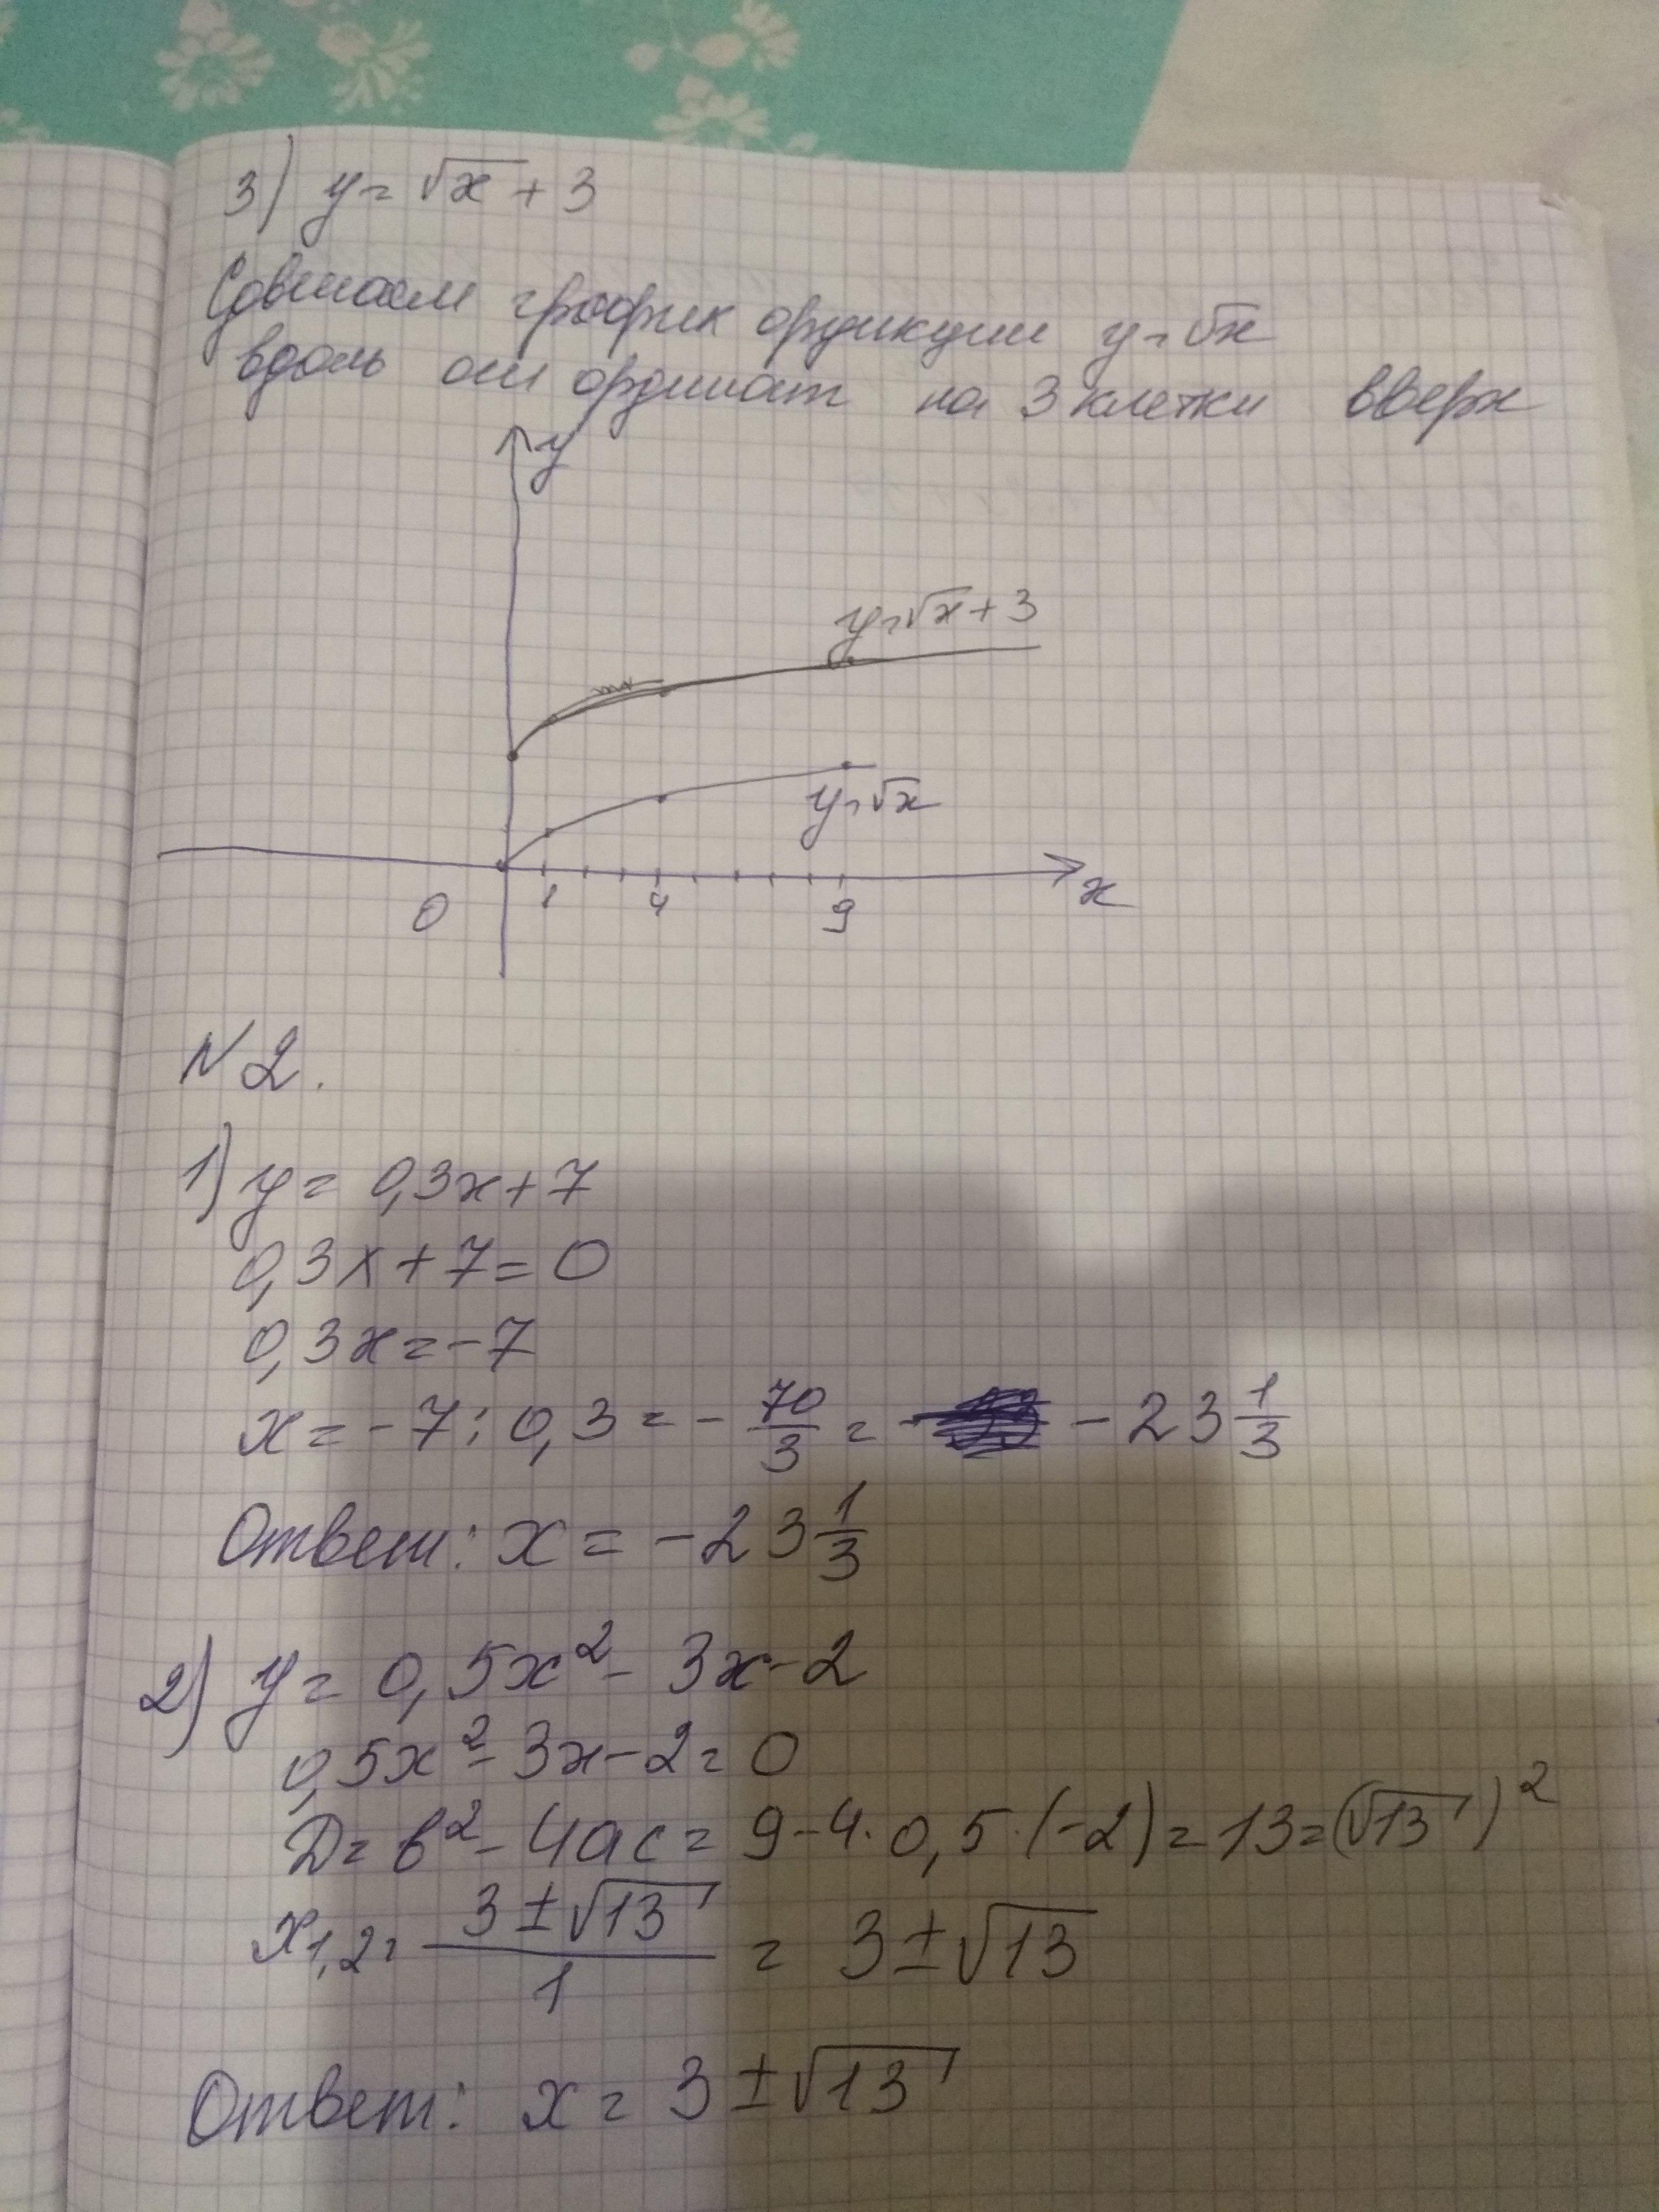 3) y = √x + 3
Сдвигаем график функции y = √x
вдоль оси ординат на 3 клетки вверх
y
y = √x + 3
y = √x
x
0 1 4 9
N2.
1) y = 0,3x + 7
0,3x + 7 = 0
0,3x = -7
x = -7 : 0,3 = - 70/3 = - 23 1/3
Ответ: x = -23 1/3
2) y = 0,5x² - 3x - 2
0,5x² - 3x - 2 = 0
D = b² - 4ac = 9 - 4 · 0,5 · (-2) = 13 = (√13)²
x1,2 = (3 ± √13)/1 = 3 ± √13
Ответ: x = 3 ± √13